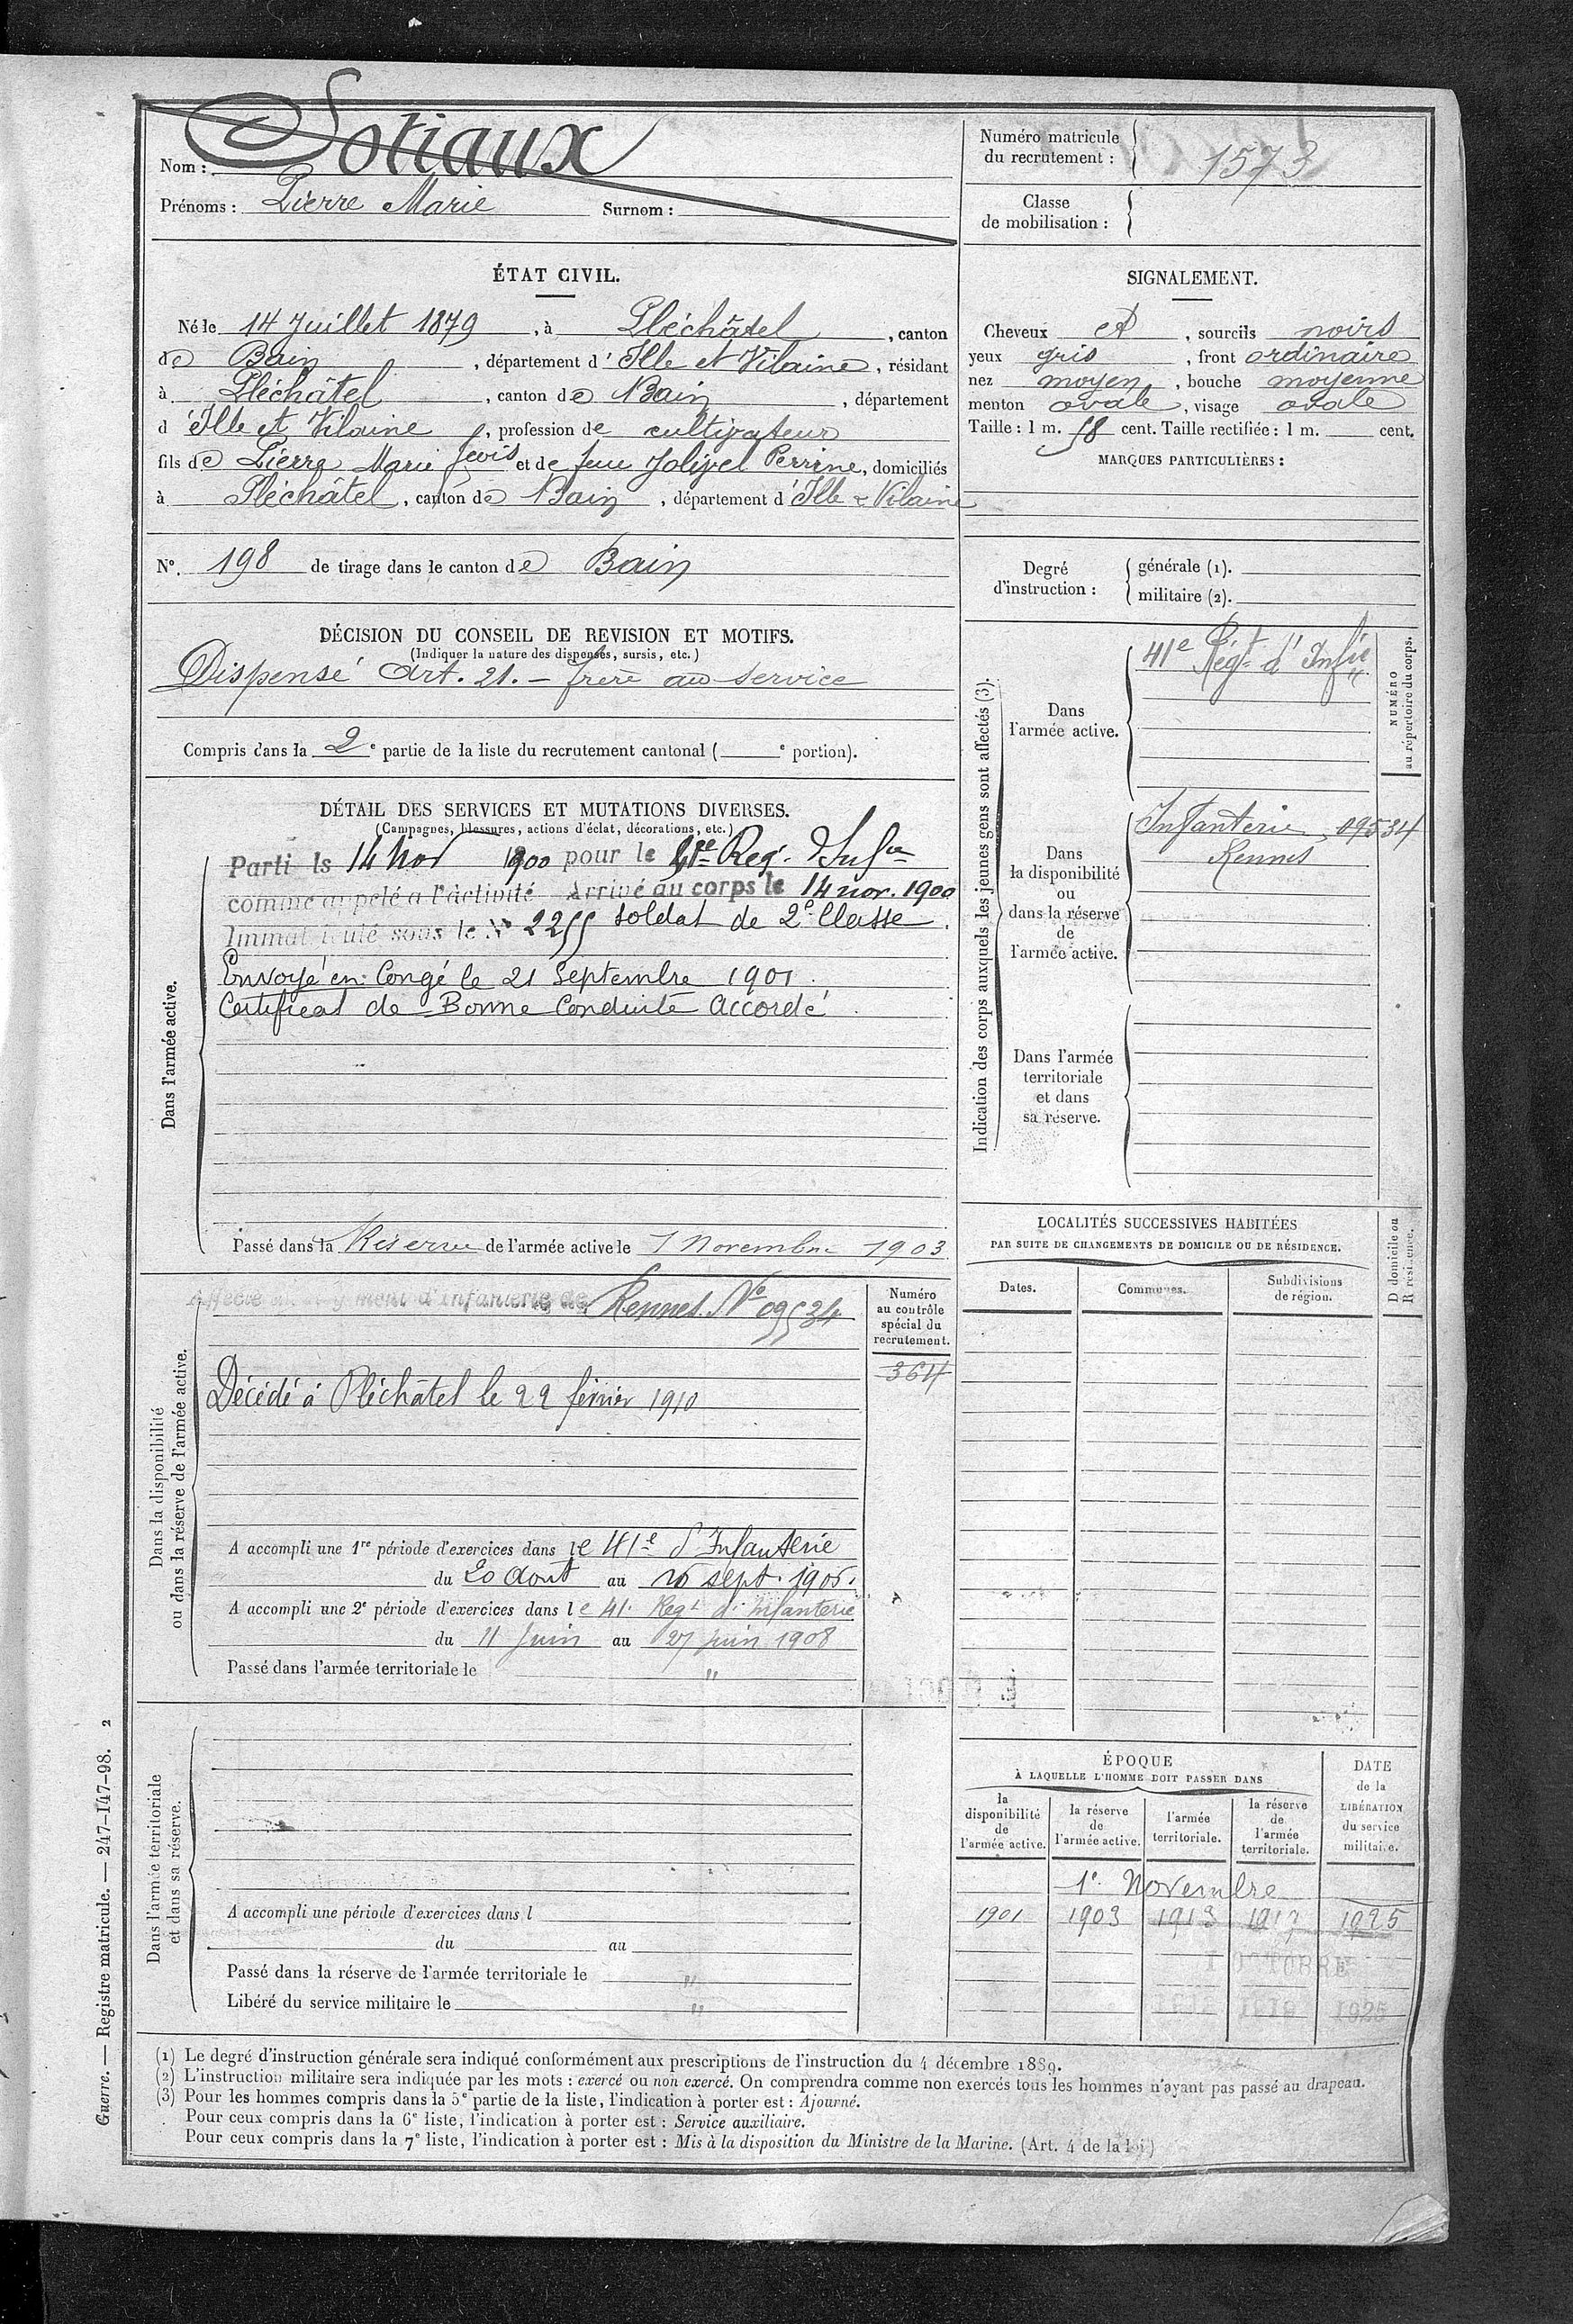 Nom : Sotiaux
Prénoms : Pierre Marie Surnom :
Numéro matricule
du recrutement : 1573
Classe
de mobilisation :
ÉTAT CIVIL.
Né le 14 Juillet 1879, à Pléchâtel, canton
de Bain, département d'Ille et Vilaine, résidant
à Pléchâtel, canton de Bain, département
d'Ille et Vilaine, profession de cultivateur
fils de Pierre Marie et de feue Jolivel Perrine, domiciliés
à Pléchâtel, canton de Bain, département d'Ille & Vilaine
N°. 198 de tirage dans le canton de Bain
SIGNALEMENT.
Cheveux et, sourcils noirs
yeux gris, front ordinaire
nez moyen, bouche moyenne
menton ovale, visage ovale
Taille : 1 m. 58 cent. Taille rectifiée : 1 m. cent.
MARQUES PARTICULIÈRES :
Degré
d'instruction :
générale (1).
militaire (2).
DÉCISION DU CONSEIL DE REVISION ET MOTIFS.
(Indiquer la nature des dispenses, sursis, etc.)
Dispensé Art. 21. - frère au service
Compris dans la 2e partie de la liste du recrutement cantonal ( e portion).
DÉTAIL DES SERVICES ET MUTATIONS DIVERSES.
(Campagnes, blessures, actions d'éclat, décorations, etc.)
Dans l'armée active.
Parti le 14 Nov 1900 pour le 41e Reg. d'Infie
comme appelé à l'activité Arrivé au corps le 14 nov. 1900
Immatriculé sous le N° 2255 soldat de 2e Classe.
Envoyé en Congé le 21 Septembre 1901.
Certificat de Bonne Conduite Accordé.
Passé dans la Réserve de l'armée active le 1 Novembre 1903.
Indication des corps auxquels les jeunes gens sont affectés (3).
Dans
l'armée active.
41e Régt d'Infie
NUMÉRO
au répertoire du corps.
Dans
la disponibilité
ou
dans la réserve
de
l'armée active.
Infanterie 09534
Rennes
Dans l'armée
territoriale
et dans
sa réserve.
Dans la disponibilité
ou dans la réserve de l'armée active.
Affecté au régiment d'infanterie de Rennes No 09534
Numéro
au contrôle
spécial du
recrutement.
364
Décédé à Pléchâtel le 22 février 1910
A accompli une 1re période d'exercices dans le 41e d'Infanterie
du 20 Aout au 16 sept. 1906.
A accompli une 2e période d'exercices dans le 41e Regt d'infanterie
du 11 Juin au 27 juin 1908
Passé dans l'armée territoriale le "
LOCALITÉS SUCCESSIVES HABITÉES
PAR SUITE DE CHANGEMENTS DE DOMICILE OU DE RÉSIDENCE.
Dates. Communes. Subdivisions
de région.
D domicile ou
R résidence.
Dans l'armée territoriale
et dans sa réserve.
A accompli une période d'exercices dans l
du au
Passé dans la réserve de l'armée territoriale le "
Libéré du service militaire le "
ÉPOQUE
À LAQUELLE L'HOMME DOIT PASSER DANS
la
disponibilité
de
l'armée active.
la réserve
de
l'armée active.
l'armée
territoriale.
la réserve
de
l'armée
territoriale.
DATE
de la
LIBÉRATION
du service
militaire.
1er Novembre
1901 1903 1913 1919 1925
1 OCTOBRE
1919 1925
(1) Le degré d'instruction générale sera indiqué conformément aux prescriptions de l'instruction du 4 décembre 1889.
(2) L'instruction militaire sera indiquée par les mots : exercé ou non exercé. On comprendra comme non exercés tous les hommes n'ayant pas passé au drapeau.
(3) Pour les hommes compris dans la 5e partie de la liste, l'indication à porter est : Ajourné.
Pour ceux compris dans la 6e liste, l'indication à porter est : Service auxiliaire.
Pour ceux compris dans la 7e liste, l'indication à porter est : Mis à la disposition du Ministre de la Marine. (Art. 4 de la loi)
Guerre. — Registre matricule. — 247-147-98. 2